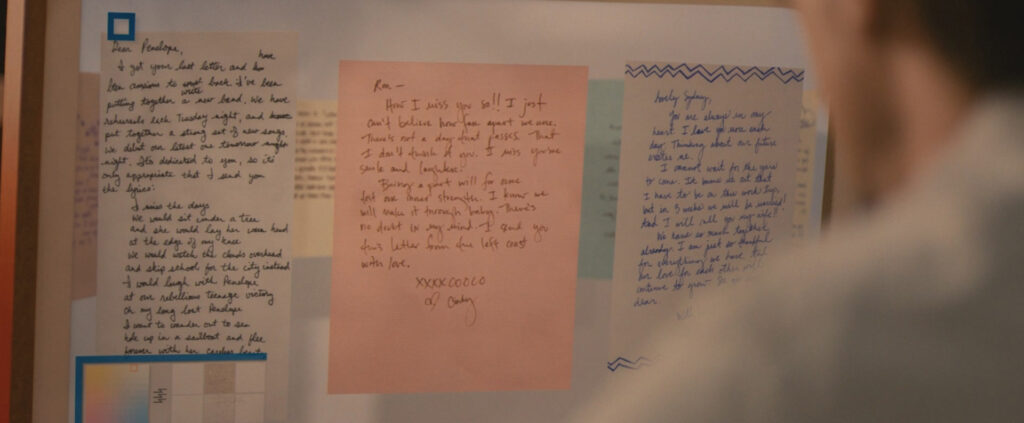 Dear Penelope,
have
I got your last letter and
been anxious to back. I've been
write
putting together a new band. We have
rehearsals each Tuesday night, and
put together a strong set of new songs.
We debut our latest one tomorrow
night. It's dedicated to you, so it's
only appropriate that I send you
the lyrics:
I miss the days
We would sit under a tree
and she would lay her warm hand
at the edge of my knee
We would watch the clouds overhead
and skip school for the city instead
I would laugh with Penelope
at our rebellious teenage victory
Oh my long lost Penelope
I want to wander out to sea
hole up in a sailboat and flee
forever with her
Ron —
How I miss you so!! I just
can't believe how far apart we are.
There's not a day that passes that
I don't think of you. I miss your
smile and laughter.
Being apart will for some
test our inner strengths. I know we
will make it through baby. There's
no doubt in my mind. I send you
this letter from the left coast
with love.
XXXXOOOO
Cindy
Lovely Sydney,
You are always in my
heart. I love you more each
day. Thinking about our future
excites me.
I cannot wait for the years
to come. It turns out that
I have to be on this work trip,
but in 3 weeks we will be married!
And I will call you my wife!
We have so much together
already. I am just so thankful
for everything we have.
Our love for each other will
continue to grow. So
dear.